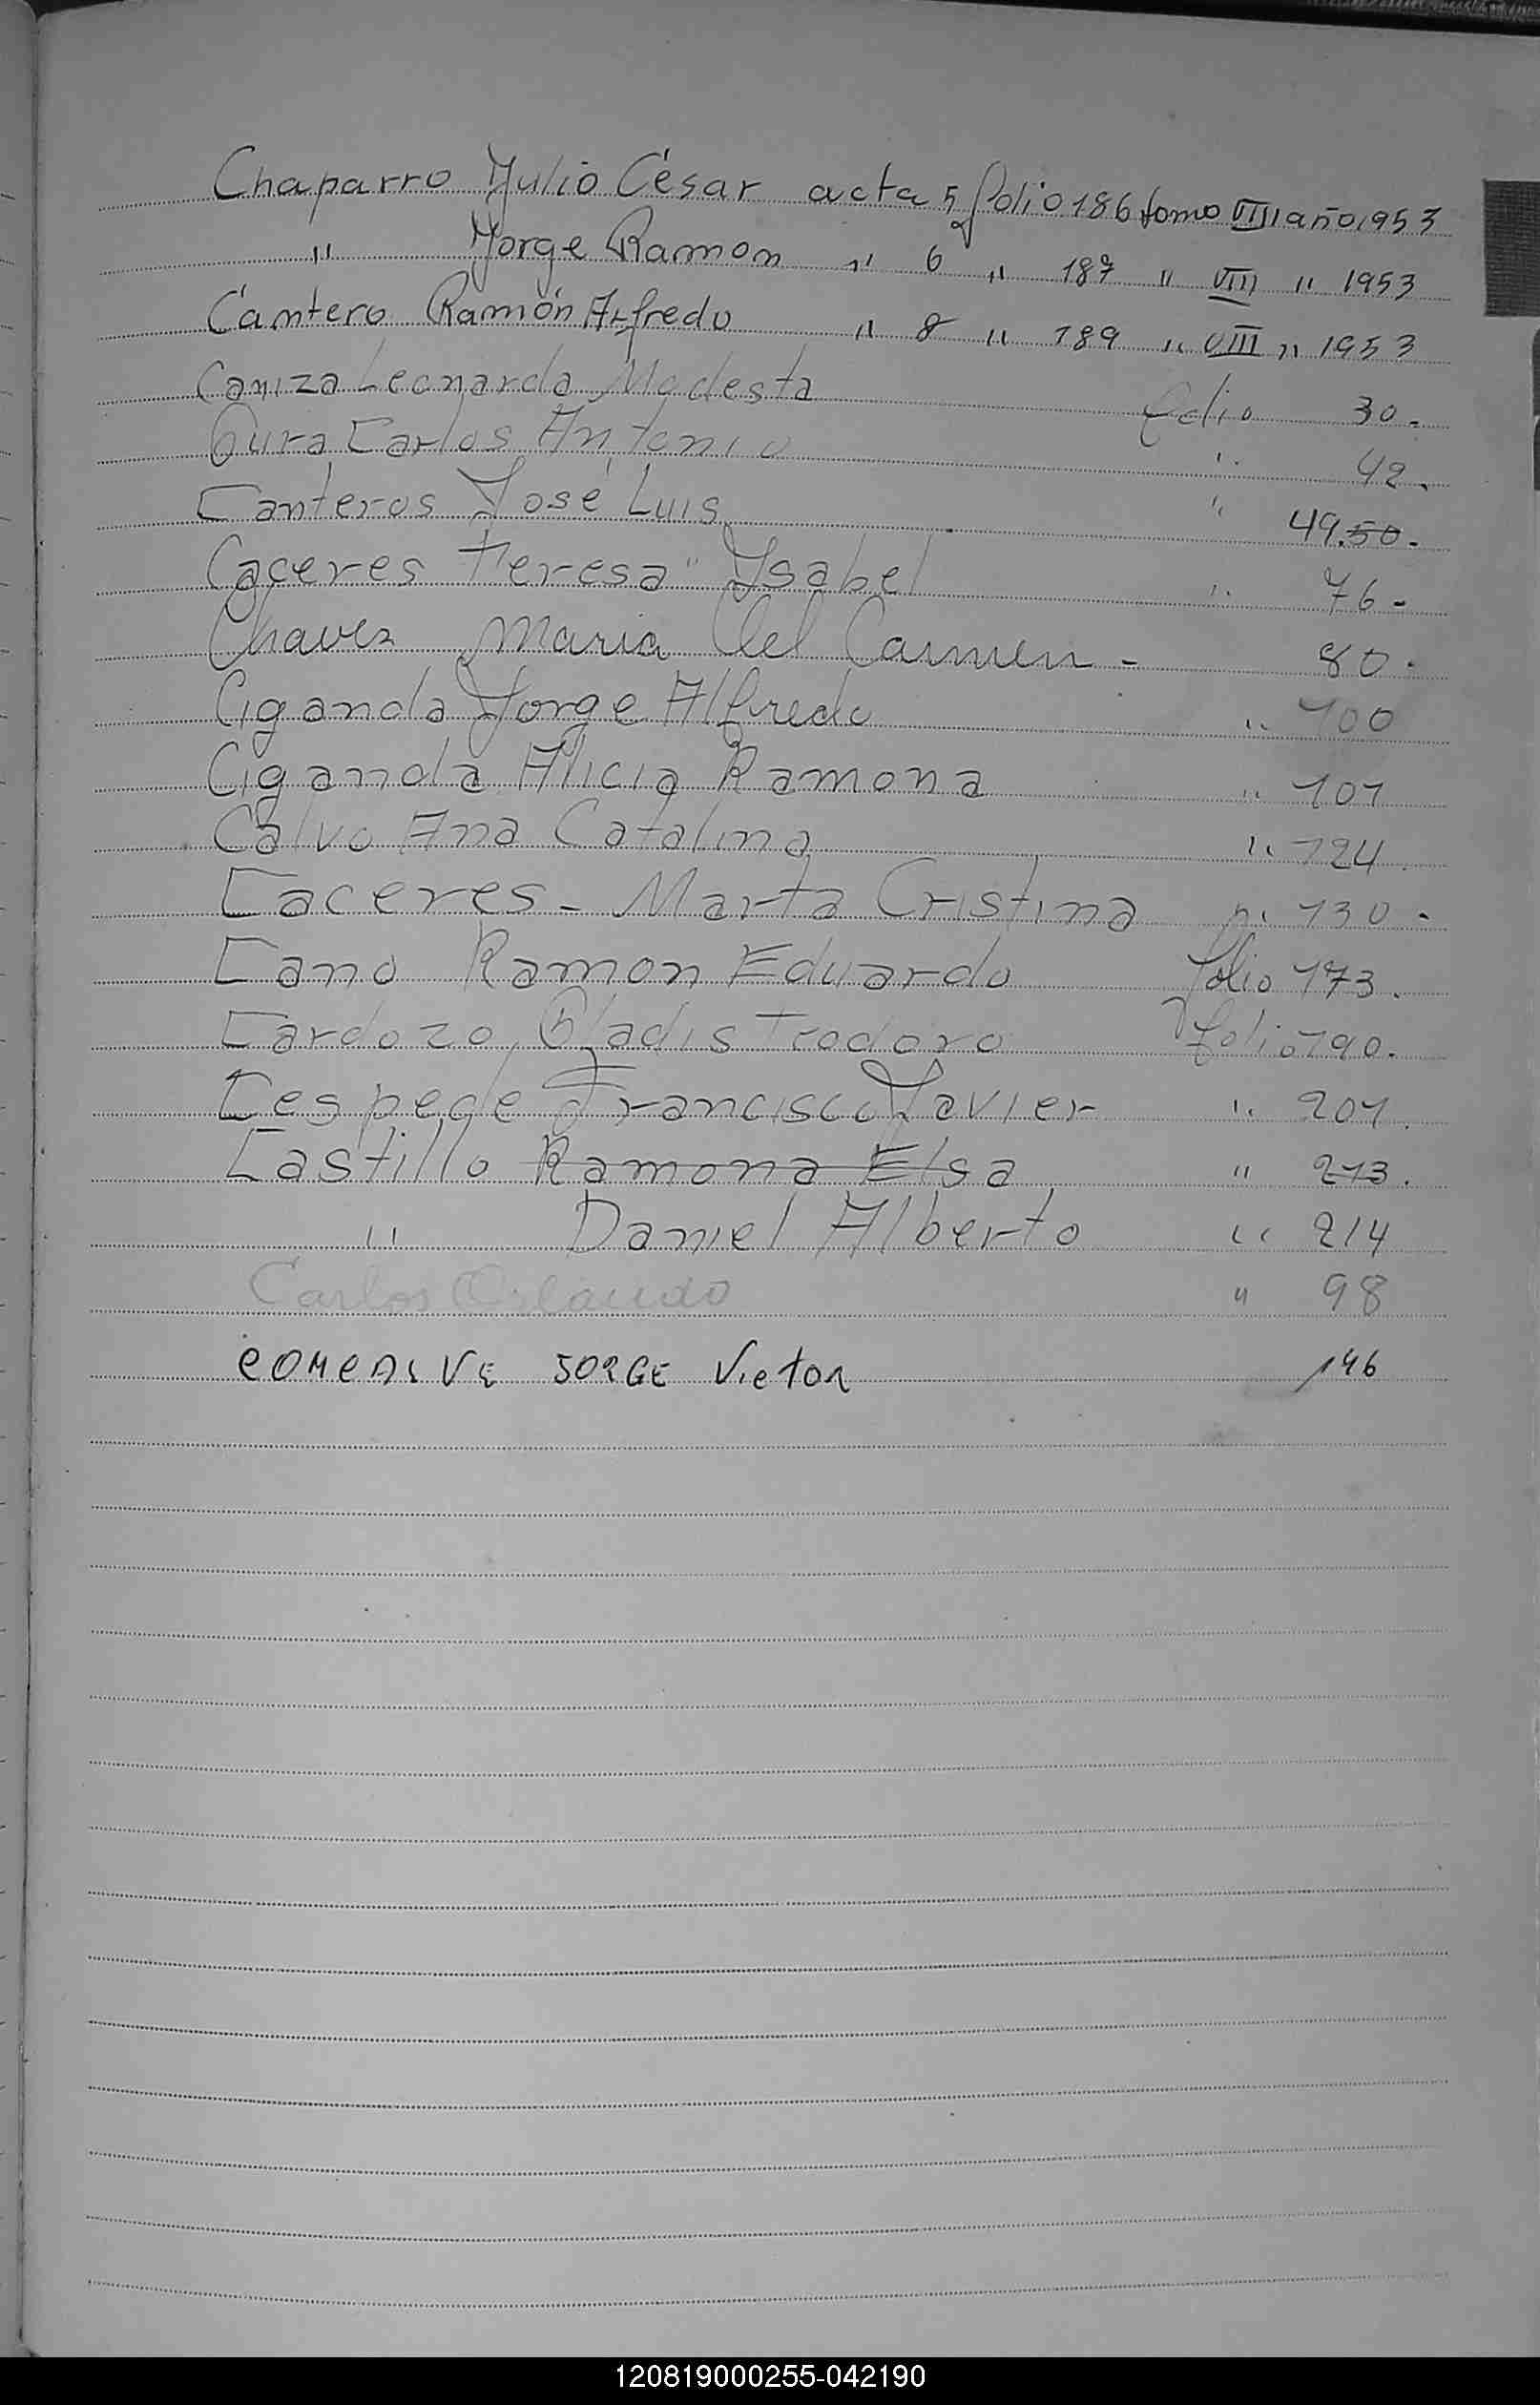 Chaparro Julio César acta 5 folio 186 tomo VIII año 1953
" Jorge Ramon " 6 " 187 " VIII " 1953
Cantero Ramón Alfredo " 8 " 189 " VIII " 1953
Caniza Leonarda Modesta folio 30.
Cura Carlos Antonio " 42.
Canteros José Luis " 49.50.
Caceres Teresa Ysabel " 76-
Chavez Maria Del Carmen - 80.
Ciganda Jorge Alfredo " 100
Ciganda Alicia Ramona " 101
Calvo Ana Catalina " 124
Caceres - Marta Cristina " 130-
Cano Ramon Eduardo folio 173.
Cardozo, Gladis Teodora folio 190.
Cespede Francisco Javier " 201.
Castillo Ramona Elsa " 213.
" Daniel Alberto " 214
Carlos Orlando " 98
JORGE Victor 146
120819000255-042190